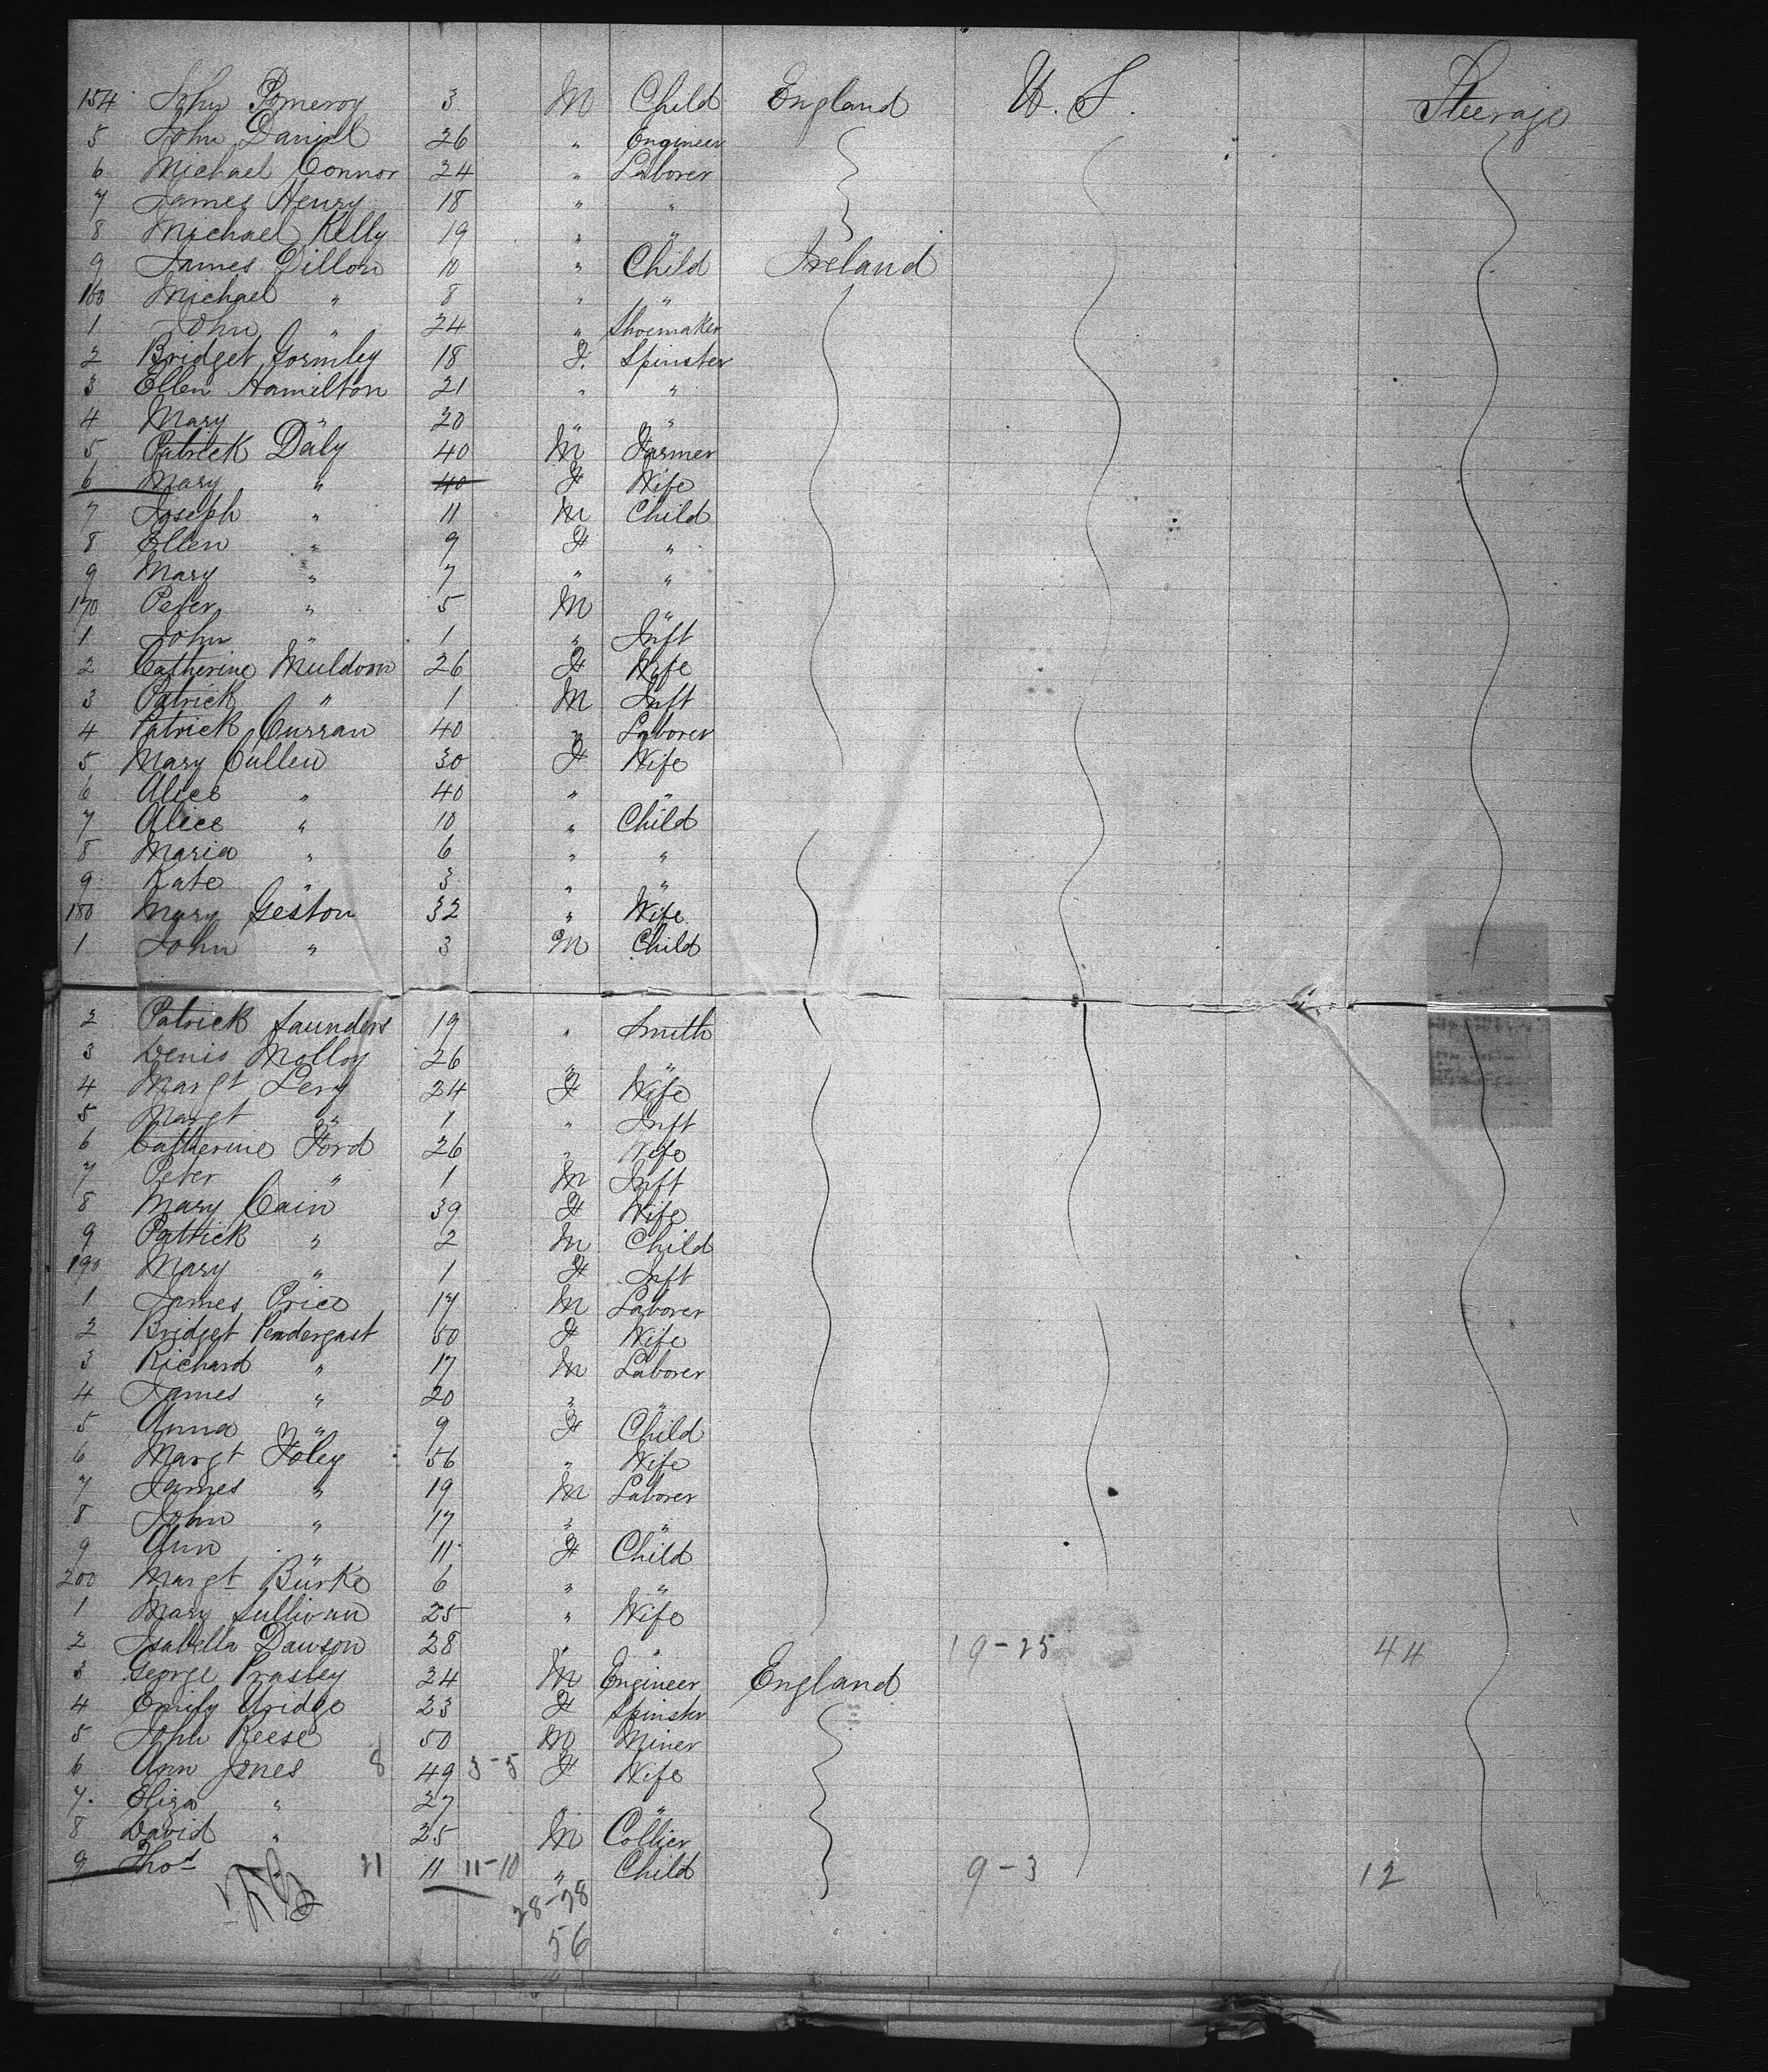 154 John Pomeroy 3 M Child England U.S. Steerage
5 John Daniel 26 " Engineer
6 Michael Connor 24 " Laborer
7 James Henry 18 " "
8 Michael Kelly 19 " "
9 James Dillon 10 " Child Ireland
160 Michael " 8 " "
1 John " 24 " Shoemaker
2 Bridget Gormley 18 F. Spinster
3 Ellen Hamilton 21 " "
4 Mary " 20 " "
5 Patrick Daly 40 M Farmer
6 Mary " 40 F Wife
7 Joseph " 11 M Child
8 Ellen " 9 F "
9 Mary " 7 " "
170 Peter " 5 M "
1 John " 1 " Inft
2 Catherine Muldoon 26 F Wife
3 Patrick " 1 M Inft
4 Patrick Curran 40 " Laborer
5 Mary Cullen 30 F Wife
6 Alice " 40 " "
7 Alice " 10 " Child
8 Maria " 6 " "
9 Kate " 3 " "
180 Mary Geston 32 " Wife
1 John " 3 M Child
2 Patrick Saunders 19 " Smith
3 Denis Molloy 26 " "
4 Margt 24 F Wife
5 Margt " 1 " Inft
6 Catherine Ford 26 " Wife
7 Peter " 1 M Inft
8 Mary Cain 39 F Wife
9 Patrick " 2 M Child
190 Mary " 1 F Inft
1 James Price 17 M Laborer
2 Bridget Pendergast 50 F Wife
3 Richard " 17 M Laborer
4 James " 20 " "
5 Anna " 9 F Child
6 Margt Foley 56 " Wife
7 James " 19 M Laborer
8 John " 17 " "
9 Ann " 11 F Child
200 Margt Burke 6 " "
1 Mary Sullivan 25 " Wife
2 Isabella Dawson 28 " " 19-25 44
3 George Prasley 24 M Engineer England
4 Emily Uridge 23 F Spinster
5 John Reese 50 M Miner
6 Ann Jones 8 49 3-5 F Wife
7. Eliza " 27 " "
8 David " 25 M Collier
9 Thos 21 11 11-10 " Child 9-3 12
28-28
56